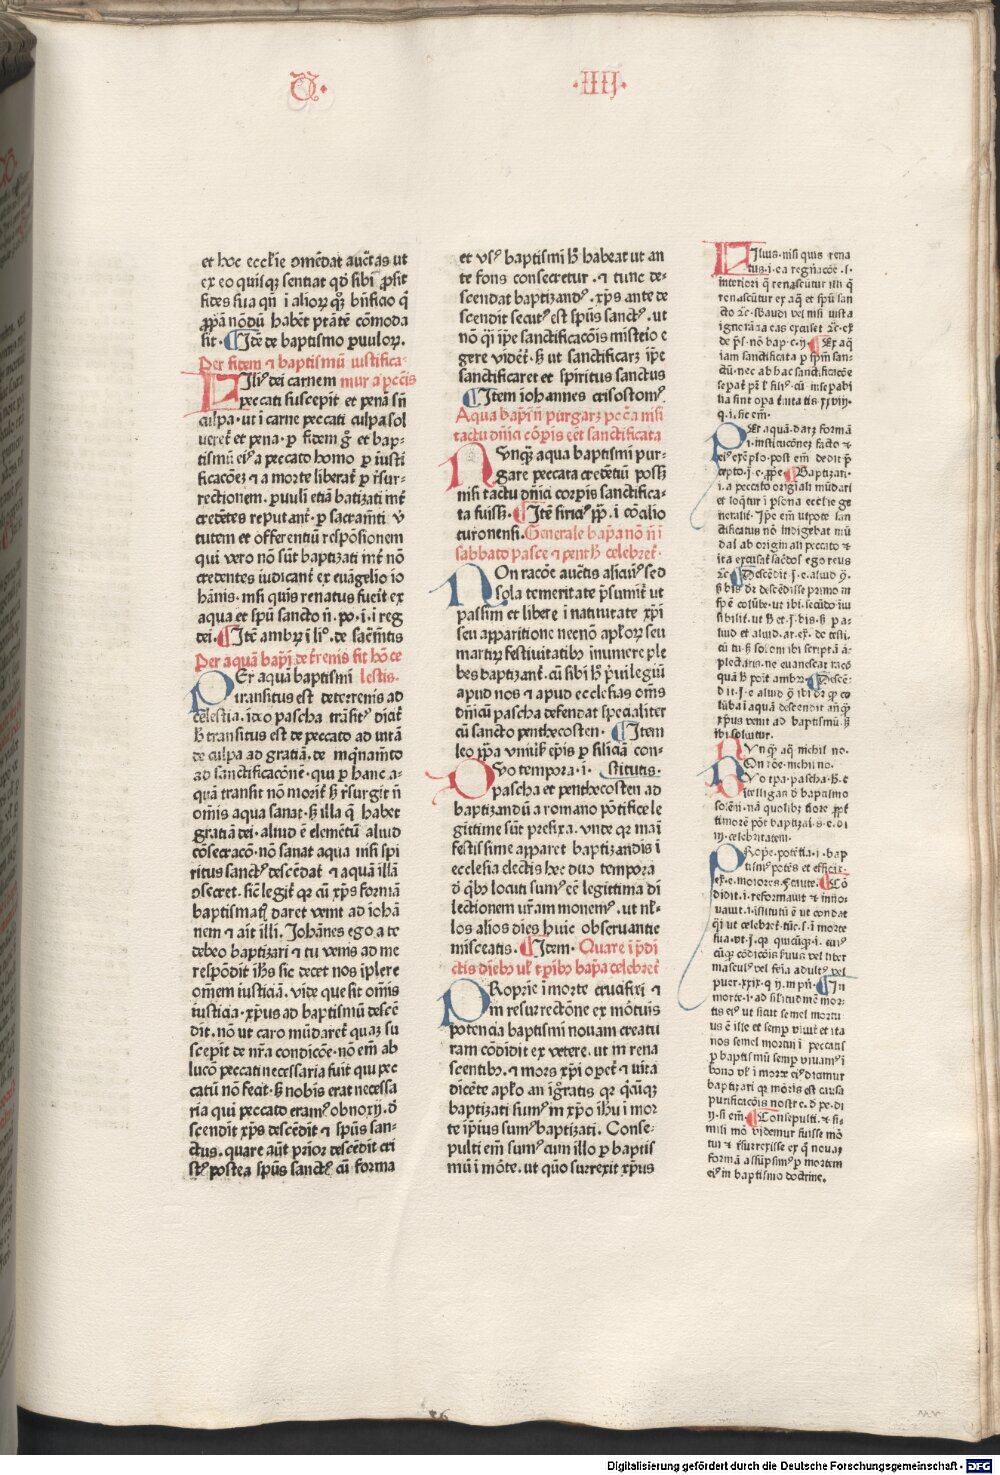 D · IIII ·
et hoc ecclesie ōmēdat auctas ut
ex eo quisq; sentiat qd sibi ꝓsit
fides sua qñ i alioꝝ qꝫ bñficio q̄
ꝓpā nōdū habēt ptātē cōmoda
fit · ¶ Idē de baptismo puuloꝝ.
Per fidem ⁊ baptismū iustifica⸗
Iliꝰ dei carnem mur a pccīs
peccati suscepit et penā sn̄
culpa · ut i carne peccati culpa sol
ueret̄ et pena · p fidem gͦ et bap⸗
tismū eiꝰ a peccato homo p iusti
ficacōez ⁊ a morte liberat̄ p r̄sur⸗
rectionem . puuli etiā batizati int̄
credētes reputant̄ · p sacramti v̄
tutem et offerentiū respōsionem
qui vero nō sūt baptizati int̄ nō
credentes iudicant̄ ex euāgelio io
hānis · nisi quis renatus fueit ex
aqua et spū sancto n̄ . po · i · i reg
dei · ¶ Itē ambrꝭ i liͦ . de sac̄mtis
Per aquā bap̄i de t̄renis fit hōce
Er aquā baptismi lestis ·
transitus est de terrenis ad
celestia . ideo pascha trāsitꝰ dicit̄
h̄ transitus est de peccato ad uitā
de culpa ad gratiā . de inqͥnamto
ad sanctificacōnē · qui p hanc a⸗
quā transit nō morit̄ sꝫ r̄surgit n̄
om̄is aqua sanat · sꝫ illa q̄ habet
gratiā dei · aliud ē elemētū aliud
cōsecracō · nō sanat aqua nisi spi
ritus sanctꝰ descēdat̄ ⁊ aquā illā
ɔsecret . sic̄ legit̄ qꝛ cū xp̄s formā
baptismatꝭ daret venit ad iohā
nem ⁊ ait illi . Johānes ego a te
debeo baptizari ⁊ tu venis ad me
respōdit ihs sic decet nos īplere
om̄em iusticiā · vide que sit om̄is
iusticia · xp̄us ad baptismū descē
dit . nō ut caro mūdaret̄ quaꝫ su
scepit de nr̄a condicōe · nō em̄ ab
lucō peccati necessaria fuit qui pec
catū nō fecit · sꝫ nobis erat necessa
ria qui peccato eramꝰ obnoxij . ð
scendit xp̄s descēdit ⁊ spūs san⸗
ctus . quare aūt prior descēdit cri
stꝰ postea spūs sanctꝰ cū forma
et vsꝰ baptismi hͦ habeat ut an
te fons consecretur · ⁊ tunc de⸗
scendat baptizandꝰ . xp̄s ante de
scendit secutꝰ est spūs sanctꝰ . ut
nō q̄i ip̄e sanctificacōis misterio e
gere videret̄ · sꝫ ut sanctificarꝫ ip̄e
sanctificaret et spiritus sanctus
¶ Item iohannes crisostomꝰ .
Aqua bap̄i n̄ purgarꝫ pcc̄a nisi
tactu dn̄ici cor̄pis eēt sanctificata
Vnq̄ꝫ aqua baptismi pur⸗
gare peccata credētiū possꝫ
nisi tactu dn̄ici corp̄is sanctifica⸗
ta fuissꝫ · ¶ Itē siriciꝰ pp̄ . i cōcilio
turonensi . Generale bap̄a nō n̄ i
sabbato pasce ⁊ penth̄ celebret̄ ·
On racōe auctīs alicuiꝰ sed
sola temeritate p̄sumit̄ ut
passim et libere i natiuitate xp̄i
seu apparitione necnō apl̄oꝝ seu
martirꝝ festiuitatibꝰ inumere ple
bes baptizant̄ . cū sibi hͦ p̄uilegiū
apud nos ⁊ apud ecclesias om̄s
dn̄icū pascha defendat specialiter
cū sancto penthecosten · ¶ Item
leo pp̄a vniuīs ep̄is p siciliā con⸗
Vo tempora · i · stitutis ·
pascha et penthecosten ad
baptizandū a romano pōtifice le
gittime sūt prefixa . vnde qꝛ maī
festissime apparet baptizandis i
ecclesia electis hec duo tempora
ð qͥbꝰ locuti sumꝰ eē legittima di
lectionem ur̄am monemꝰ . ut nͭl⸗
los alios dies huic obseruantie
misceatis · ¶ Item · Quare ip̄di
ctis diebꝰ ul̄ t̄pibꝰ bap̄a celebret̄
Roprie i morte crucifixi ⁊
in resurrectōne ex mōtuis
potencia baptismi nouam creatu
ram cōdidit ex vetere . ut in rena
scentibꝰ . ⁊ mors xp̄i opet̄ ⁊ uita
dicēte apl̄o an īgratis qꝛ q̄cūqꝫ
baptizati sumꝰ in xp̄o ihū i mor
te ip̄ius sumꝰ baptizati . Conse⸗
pulti em̄ sumꝰ cum illo p baptis
mū i mōte . ut quō surrexit xp̄us
Ilius · nisi quis rena
tus · i · ea regn̄acōe · s ·
interiori q̄ renascūtur illi q̄
renascūtur ex aq̄ et spū san
cto ⁊c · sꝫ
ignorācia eas excuset ⁊c · ex̄
de p̄s · nō bap · c · ij ¶ Ex aq̄
iam sanctificata p spm̄ san⸗
ctū · nec ab hac sanctificatiōe
sepat̄ pr̄ l̄ filiꝰ · cū insepabi
lia sint opa t̄nitatis xxiiij ·
q · i · sic em̄ ·
Er aquā · darꝫ formā
· i · institucōnez facto ⁊
eiꝰ exēplo · post em̄ dedit p̄
cepto · i · e · ꝓp̄e ¶ Baptizari ·
i · a peccato originali mūdari
et loqͥtur i psona ecclesie ge
neralit̄ · Ip̄e em̄ utpote san
ctificatus nō indigebat mū
dari ab originali peccato ⁊
ita excusat̄ sac̄dos ego reus
⁊c ¶ Descēdit · i · e · aliud q̄ ·
sꝫ bis dr̄ descēdisse primo in
spē colūbe · ut ibi · secūdo iui
sibilit̄
plectaris · ne euanescat racō
quā hͦ poīt ambrꝭ ¶ Descē⸗
dit · i · e aliud q̄ ibi dr̄ qꝛ co
lūba i aquā descendit añq̄ꝫ
xp̄us venit ad baptismū · sꝫ
ibi soluitur ·
Vnq̄ꝫ aq̄ nichil no ·
On rōe · nichil no ·
Vo t̄pa · pascha · h · e
itelligas ð baptismo
solēni · nā quolibꝫ die
timorē pōt baptizari · s · e · di
ni · celebritatem ·
Rop̄e · potētia · i · bap
tismꝰ potēs et efficax
¶ Cō
didit · i · reformauit ⁊ inno⸗
uauit · i · istitutū ē ut condat
q̄i ut celebret̄ tūc · s · i morte
sua · vt · i · qꝛ quicūqꝫ · i · cuiꝰ
cūqꝫ cōdicōis
masculꝰ vel feīa adultꝰ vel
puer · xxix · q · ij · in pn̄ · ¶ In
morte · i · ad silitudinē mor⸗
tis eiꝰ ut sicut semel mortu
us ē ille et semp viuit et ita
nos semel mortui i peccatis
p baptismū semp viuamꝰ i
bono ul̄ i morte eiꝰ dicimur
baptizari qꝛ mōris est causa
purificacōis nostre · ð pe · di
ij · si em̄ · ¶ Consepulti · ⁊ si⸗
mili mō videmur fuisse mō
tui ⁊ r̄surrexisse ex q̄ nouaꝫ
formā assūpsimꝰ p mortem
eiꝰ in baptismo doctrine ·
Digitalisierung gefördert durch die Deutsche Forschungsgemeinschaft · DFG